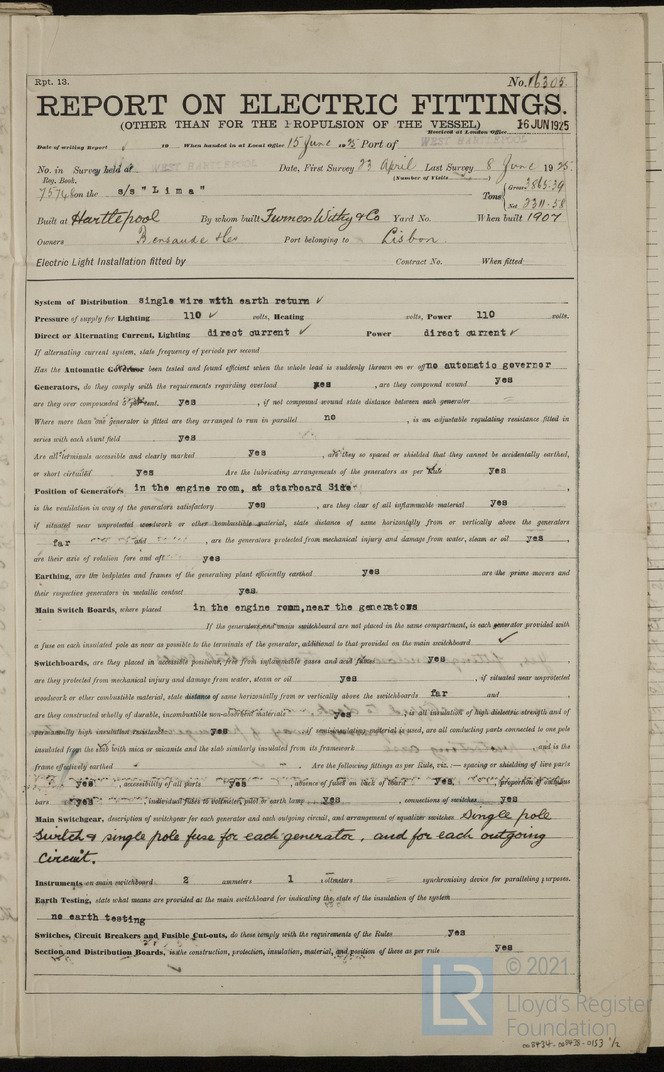 Rpt. 13.
No. 16305
REPORT ON ELECTRIC FITTINGS.
(OTHER THAN FOR THE PROPULSION OF THE VESSEL)
Received at London Office 16 JUN 1925
Date of writing Report 19 When handed in at Local Office 15 June 1925 Port of WEST HARTLEPOOL
No. in Survey held at WEST HARTLEPOOL Date, First Survey 23 April Last Survey 8 June 1925
Reg. Book. (Number of Visits )
75748 on the s/s "Lima" Tons { Gross 3865.39
Net 2311.58
Built at Hartlepool By whom built Furness Withy & Co Yard No. When built 1907
Owners Bensaude & Co Port belonging to Lisbon
Electric Light Installation fitted by Contract No. When fitted
System of Distribution single wire with earth return
Pressure of supply for Lighting 110 volts, Heating volts, Power 110 volts.
Direct or Alternating Current, Lighting direct current Power direct current
If alternating current system, state frequency of periods per second
Has the Automatic Governor been tested and found efficient when the whole load is suddenly thrown on or off no automatic governor
Generators, do they comply with the requirements regarding overload yes , are they compound wound yes
are they over compounded 5 per cent. yes , if not compound wound state distance between each generator
Where more than one generator is fitted are they arranged to run in parallel no , is an adjustable regulating resistance fitted in
series with each shunt field yes
Are all terminals accessible and clearly marked yes , are they so spaced or shielded that they cannot be accidentally earthed,
or short circuited yes Are the lubricating arrangements of the generators as per Rule yes
Position of Generators in the engine room, at starboard Side
is the ventilation in way of the generators satisfactory yes , are they clear of all inflammable material yes
if situated near unprotected woodwork or other combustible material, state distance of same horizontally from or vertically above the generators
far and , are the generators protected from mechanical injury and damage from water, steam or oil yes ,
are their axis of rotation fore and aft yes
Earthing, are the bedplates and frames of the generating plant efficiently earthed yes are the prime movers and
their respective generators in metallic contact yes
Main Switch Boards, where placed in the engine room, near the generators
If the generators and main switchboard are not placed in the same compartment, is each generator provided with
a fuse on each insulated pole as near as possible to the terminals of the generator, additional to that provided on the main switchboard
Switchboards, are they placed in accessible positions, free from inflammable gases and acid fumes yes ,
are they protected from mechanical injury and damage from water, steam or oil yes , if situated near unprotected
woodwork or other combustible material, state distance of same horizontally from or vertically above the switchboards far and ,
are they constructed wholly of durable, incombustible non-absorbent materials yes , is all insulation of high dielectric strength and of
permanently high insulation resistance yes , if semi-insulating material is used, are all conducting parts connected to one pole
insulated from the slab with mica or micanite and the slab similarly insulated from its framework , and is the
frame effectively earthed . Are the following fittings as per Rule, viz.:— spacing or shielding of live parts
yes , accessibility of all parts yes , absence of fuses on back of board yes , proportion of omnibus
bars yes , individual fuses to voltmeter, pilot or earth lamp yes , connections of switches yes
Main Switchgear, description of switchgear for each generator and each outgoing circuit, and arrangement of equalizer switches Single pole
switch & single pole fuse for each generator, and for each outgoing
circuit.
Instruments on main switchboard 2 ammeters 1 voltmeters synchronising device for paralleling purposes.
Earth Testing, state what means are provided at the main switchboard for indicating the state of the insulation of the system
no earth testing
Switches, Circuit Breakers and Fusible Cut-outs, do these comply with the requirements of the Rules yes
Section and Distribution Boards, is the construction, protection, insulation, material, and position of these as per rule yes
LR
© 2021
Lloyd's Register
Foundation
008434-008438-0153 1/2